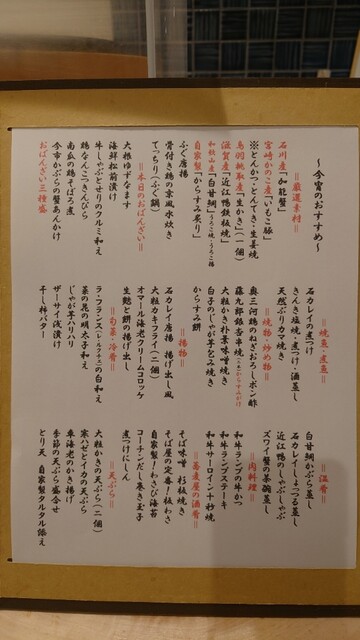 ～今宵のおすすめ～
＝厳選素材＝
石川産「加能蟹」
宮崎かのこ産「いもこ豚」
※とんかつ・とんてき・生姜焼
鳥羽桃取産「生かき」（一個）
滋賀産「近江鴨鉄板焼」
和歌山産「白甘鯛」
自家製「からすみ炙り」
ふぐ唐揚
骨付き鶏の素風水炊き
てっちり（ふぐ鍋）
＝本日のおばんざい＝
大根ゆずなます
海鮮松前漬け
牛しゃぶとせりのクルミ和え
鶏なんこつきんぴら
南瓜の鶏そぼろ煮
今市かぶらの蟹あんかけ
おばんざい三種盛
＝焼魚・煮魚＝
石カレイの煮つけ
きんき塩焼・煮つけ・酒蒸し
天然ぶりカマ焼き
＝焼物・炒め物＝
奥三河鶏のねぎおろしポン酢
藤九郎銀杏串焼
大粒かき朴葉味噌焼き
白子のじゃが芋包み焼き
からすみ餅
＝揚物＝
石カレイ唐揚 揚げ出し風
大粒カキフライ（二個）
オマール海老クリームコロッケ
生麩と餅の揚げ出し
＝旬菜・冷肴＝
ラ・フランスの白和え
菜の花の明太子和え
じゃが芋ハリハリ
ザーサイ浅漬け
干し柿バター
＝温肴＝
白甘鯛かぶら蒸し
石カレイしょっつる蒸し
近江鴨のしゃぶしゃぶ
ズワイ蟹の茶碗蒸し
＝肉料理＝
和牛ランプの牛かつ
和牛ランプステーキ
和牛サーロイン十秒焼
＝蕎麦屋の酒肴＝
そば味噌 杉板焼き
そば屋の定番！板わさ
自家製！わさび海苔
コーチンだし巻き玉子
煮つけにしん
＝天ぷら＝
大粒かきの天ぷら（二個）
寒ハゼとイカの天ぷら
車海老のかき揚げ
季節の天ぷら盛合せ
とり天 自家製タルタル添え